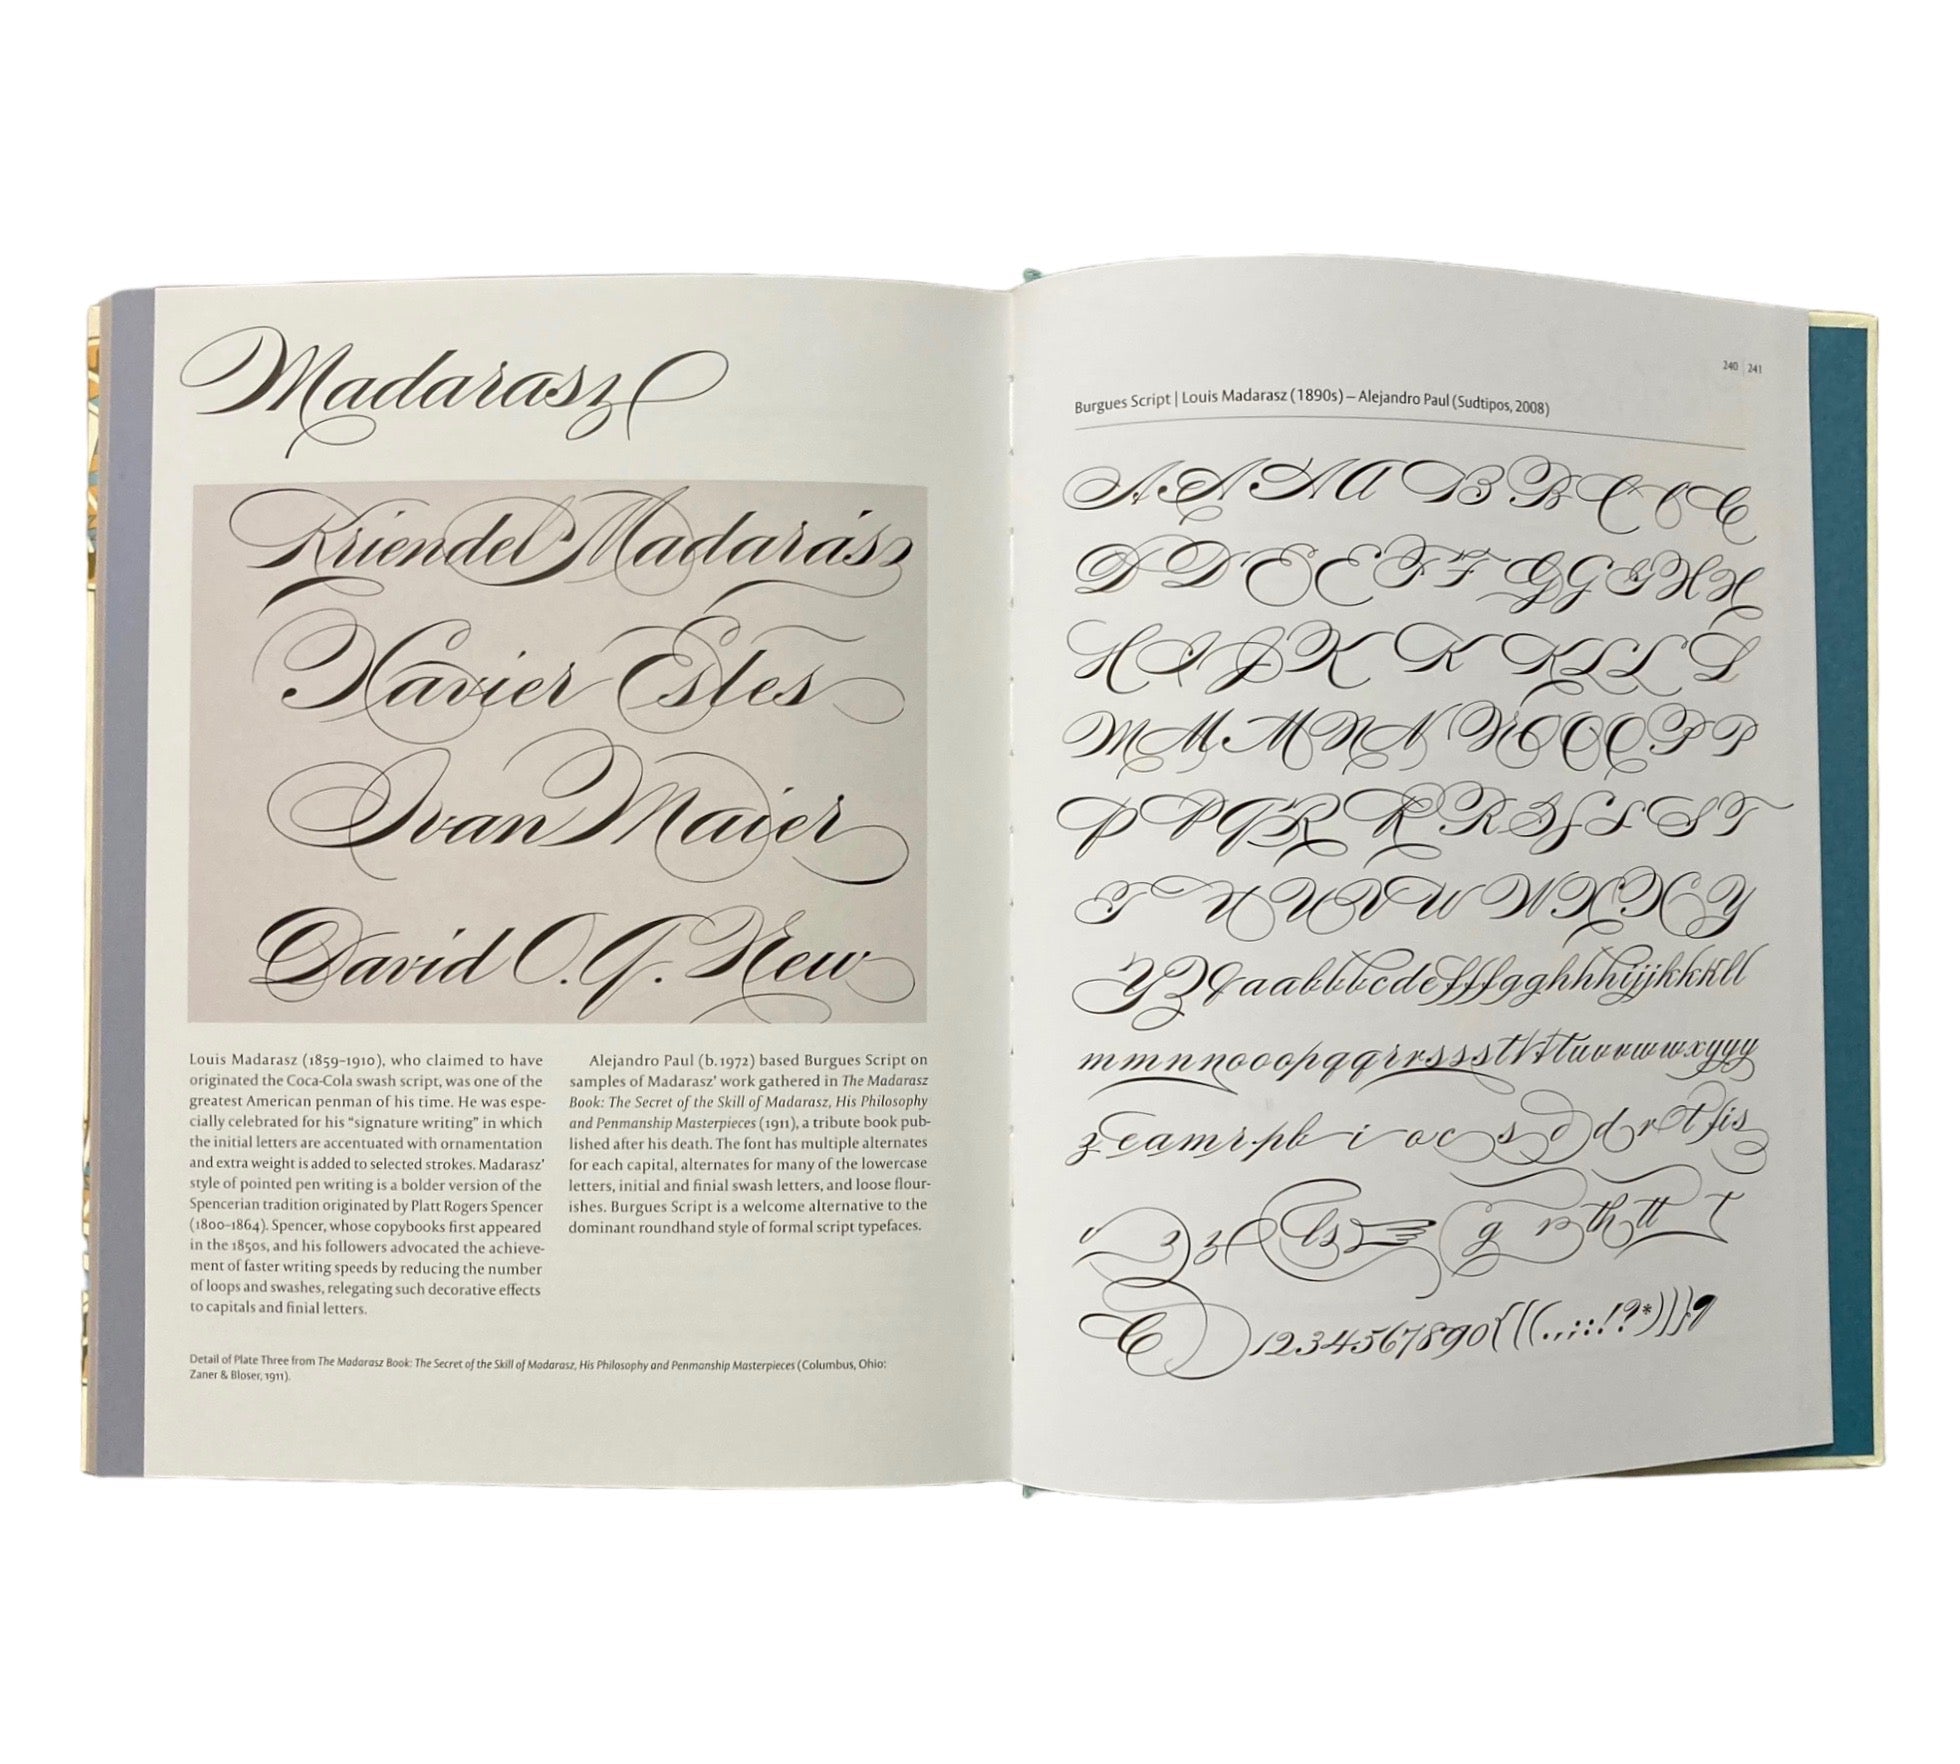 Madarasz
Kriendel Madarász
Xavier Estes
Ivan Maier
David O. G. New
Louis Madarasz (1859–1910), who claimed to have
originated the Coca-Cola swash script, was one of the
greatest American penman of his time. He was espe-
cially celebrated for his “signature writing” in which
the initial letters are accentuated with ornamentation
and extra weight is added to selected strokes. Madarasz’
style of pointed pen writing is a bolder version of the
Spencerian tradition originated by Platt Rogers Spencer
(1800–1864). Spencer, whose copybooks first appeared
in the 1850s, and his followers advocated the achieve-
ment of faster writing speeds by reducing the number
of loops and swashes, relegating such decorative effects
to capitals and finial letters.
Alejandro Paul (b. 1972) based Burgues Script on
samples of Madarasz’ work gathered in The Madarasz
Book: The Secret of the Skill of Madarasz, His Philosophy
and Penmanship Masterpieces (1911), a tribute book pub-
lished after his death. The font has multiple alternates
for each capital, alternates for many of the lowercase
letters, initial and finial swash letters, and loose flour-
ishes. Burgues Script is a welcome alternative to the
dominant roundhand style of formal script typefaces.
Detail of Plate Three from The Madarasz Book: The Secret of the Skill of Madarasz, His Philosophy and Penmanship Masterpieces (Columbus, Ohio:
Zaner & Bloser, 1911).
240 | 241
Burgues Script | Louis Madarasz (1890s) – Alejandro Paul (Sudtipos, 2008)
A A A A B B C C C
D D E E F F G G G H H
H I J K K K L L L
M M M N N N O O O P P
P P Q R R R S S S S T
T U U V V W W X X Y
Y Z
1234567890{[(.,;:!?*)]}¶